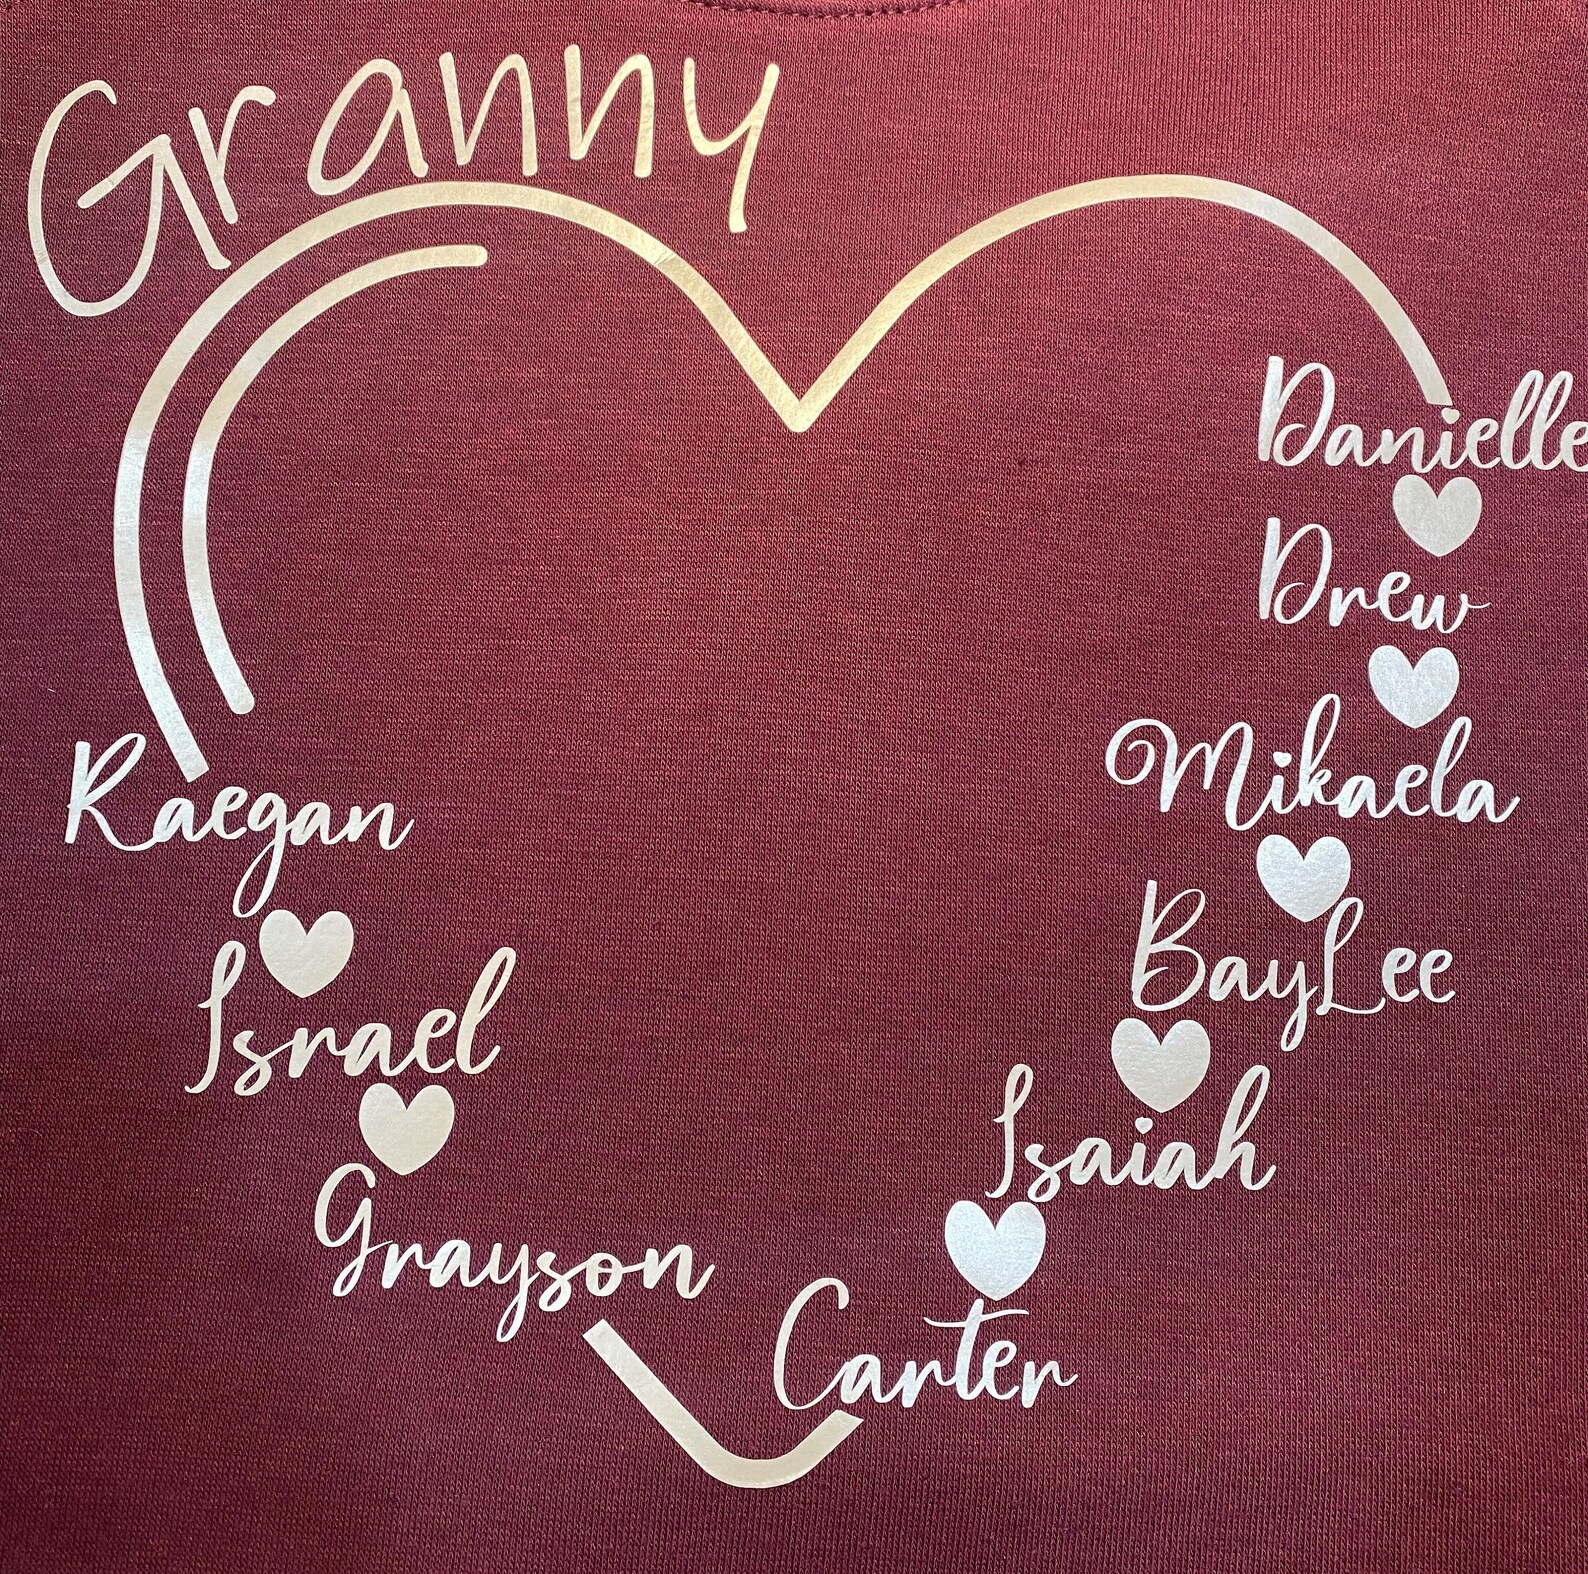 Granny
Danielle
Drew
Mikaela
BayLee
Isaiah
Carter
Raegan
Israel
Grayson